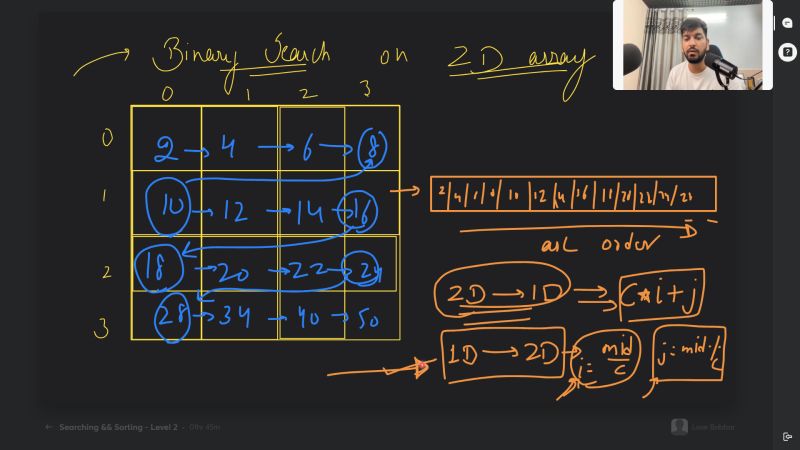 Binary Search on 2D array
0 1 2 3
0 2 → 4 → 6 → 8
1 10 → 12 → 14 → 16
2 18 → 20 → 22 → 24
3 28 → 34 → 40 → 50
→ 2/4/6/8/10/12/14/16/18/20/22/24/28
order
2D → 1D ⇒ C*i+j
1D → 2D → i = mid/c j = mid % c
← Searching && Sorting - Level 2 - 0hr 45m
Love Babbar